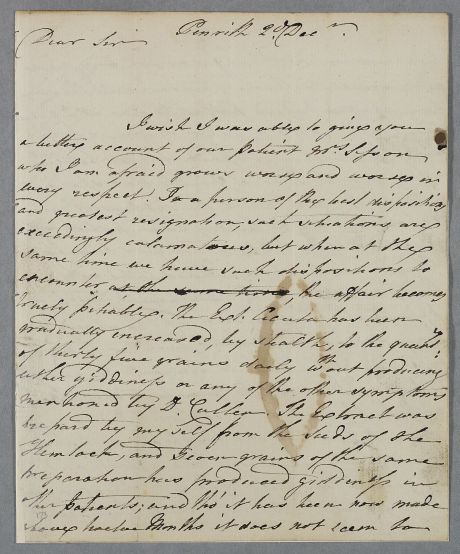 Penrith 2d. Decr.
Dear Sir
I wish I was able to give you
a better account of our patient Mrs
who I am afraid grows worse and worse in
every respect. To a person of the best disposition
and greatest resignation, such situations are
exceedingly calamatous, but when at the
same time we have such dispositions to
encounter at the same time, the affair becomes
truely pitiable. The Ext. Cicuta has been
gradually increased, by stealth, to the quanty.
of thirty five grains daily without producing
either giddiness or any of the other symptoms
mentioned by D. Cullen. The Extract was
prepard by my self from the Seeds of the
Hemlock, and Seven grains of the same
preparation has produced giddiness in
other patients; and tho' it has been now made
above twelve Months it does not seem to